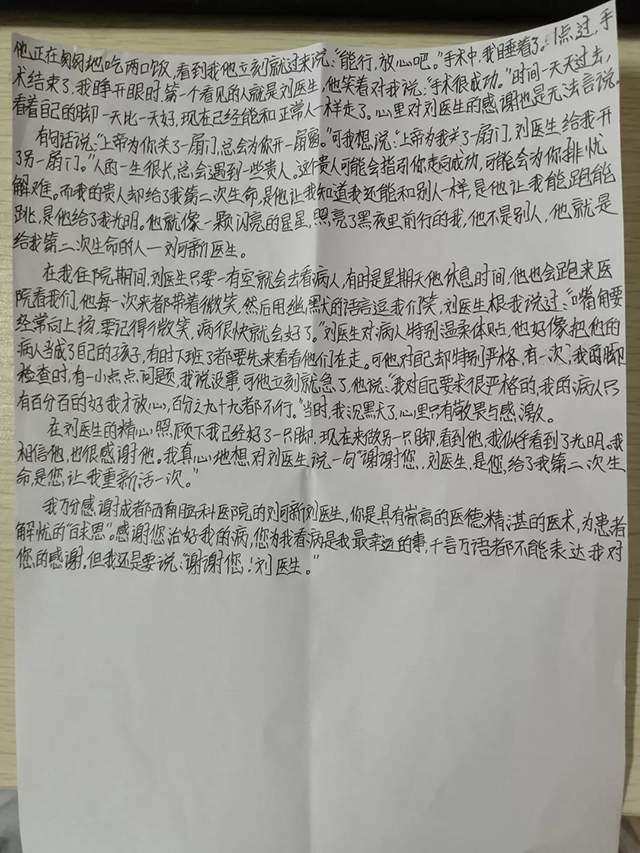 他正在匆匆地吃两口饭,看到我他立刻就过来说:“能行,放心吧。”手术中,我睡着了。1点过,手
术结束了,我睁开眼时,第一个看见的人就是刘医生,他笑着对我说:“手术很成功。”时间一天天过去,
看着自己的脚一天比一天好,现在已经能和正常人一样走了。心里对刘医生的感谢也是无法言说。
有句话说:“上帝为你关了一扇门,总会为你开一扇窗。”可我想,说:“上帝为我关了一扇门,刘医生给我开
了另一扇门。”人的一生很长,总会遇到一些贵人。这个贵人可能会指引你走向成功,可能会为你排忧
解难。而我的贵人却给了我第二次生命,是他让我知道我还能和别人一样,是他让我能跑能
跳,是他给了我光明。他就像一颗闪亮的星星,照亮了黑夜里前行的我,他不是别人,他就是
给我第二次生命的人—刘可新医生。
在我住院期间,刘医生只要一有空就会去看病人,有时是星期天他休息时间,他也会跑来医
院看我们,他每一次来都带着微笑,然后用幽默的话言逗我们笑,刘医生根我说过:“嘴角要
经常向上扬,要记得微笑,病很快就会好了。”刘医生对病人特别温柔体贴,他好像把他的
病人当成了自己的孩子,有时下班了都要先来看看他们在走。可他对自己却特别严格,有一次,我的脚
检查时,有一小点点问题,我说没事,可他立刻就急了,他说:“我对自己要求很严格的,我的病人只
有百分百的好我才放心,百分之九十九都不行。”当时,我沉默了,心里只有敬畏与感激。
在刘医生的精心照顾下我已经好了一只脚,现在来做另一只脚,看到他,我似乎看到了光明。我
相信他,也很感谢他。我真心地想对刘医生说一句“谢谢您,刘医生,是您,给了我第二次生
命,是您,让我重新活一次。”
我万分感谢成都西南脑科医院的刘可新刘医生,你是具有崇高的医德,精湛的医术,为患者
解忧的“白求恩”。感谢您治好我的病,您为我看病是我最幸运的事,千言万语都不能表达我对
您的感谢,但我还是要说:“谢谢您!刘医生。”